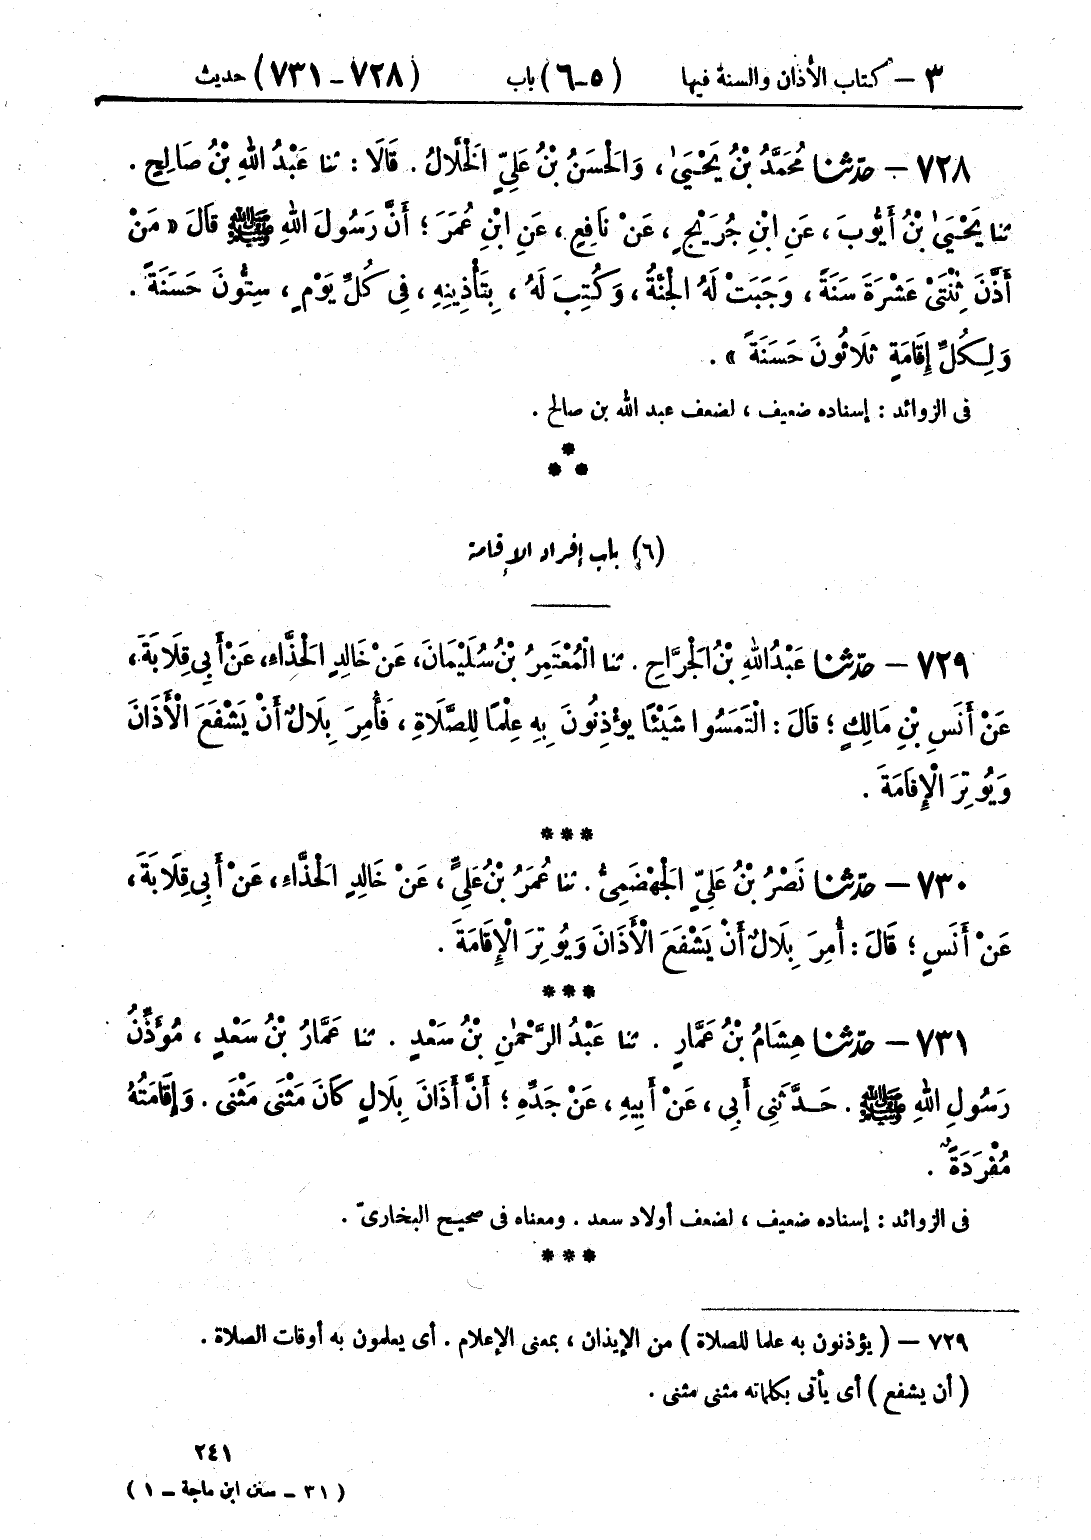 ٣ – كتاب الأذان والسنة فيها (٥-٦) باب (٧٢٨ – ٧٣١) حديث
٧٢٨ – حدّثنا مُحَمَّدُ بْنُ يَحْيَىٰ ، وَالْحَسَنُ بْنُ عَلِيٍّ الْخَلَّالُ . قَالَا : ثنا عَبْدُ اللهِ بْنُ صَالِحٍ .
ثنا يَحْيَىٰ بْنُ أَيُّوبَ ، عَنِ ابْنِ جُرَيْجٍ ، عَنْ نَافِعٍ ، عَنِ ابْنِ عُمَرَ ؛ أَنَّ رَسُولَ اللهِ ﷺ قَالَ « مَنْ
أَذَّنَ ثِنْتَيْ عَشْرَةَ سَنَةً ، وَجَبَتْ لَهُ الْجَنَّةُ ، وَكُتِبَ لَهُ ، بِتَأْذِينِهِ ، فِي كُلِّ يَوْمٍ ، سِتُّونَ حَسَنَةً .
وَلِكُلِّ إِقَامَةٍ ثَلَاثُونَ حَسَنَةً » .
فى الزوائد : إسناده ضعيف ، لضعف عبد الله بن صالح .
*
* *
(٦) باب إفراد الإقامة
٧٢٩ – حدّثنا عَبْدُ اللهِ بْنُ الْجَرَّاحِ . ثنا الْمُعْتَمِرُ بْنُ سُلَيْمَانَ ، عَنْ خَالِدٍ الْحَذَّاءِ ، عَنْ أَبِي قِلَابَةَ ،
عَنْ أَنَسِ بْنِ مَالِكٍ ؛ قَالَ : الْتَمَسُوا شَيْئًا يُؤْذِنُونَ بِهِ عِلْمًا لِلصَّلَاةِ ، فَأُمِرَ بِلَالٌ أَنْ يَشْفَعَ الْأَذَانَ
وَيُوتِرَ الْإِقَامَةَ .
* * *
٧٣٠ – حدّثنا نَصْرُ بْنُ عَلِيٍّ الْجَهْضَمِيُّ . ثنا عُمَرُ بْنُ عَلِيٍّ ، عَنْ خَالِدٍ الْحَذَّاءِ ، عَنْ أَبِي قِلَابَةَ ،
عَنْ أَنَسٍ ؛ قَالَ : أُمِرَ بِلَالٌ أَنْ يَشْفَعَ الْأَذَانَ وَيُوتِرَ الْإِقَامَةَ .
* * *
٧٣١ – حدّثنا هِشَامُ بْنُ عَمَّارٍ . ثنا عَبْدُ الرَّحْمٰنِ بْنُ سَعْدٍ . ثنا عَمَّارُ بْنُ سَعْدٍ ، مُؤَذِّنُ
رَسُولِ اللهِ ﷺ . حَدَّثَنِي أَبِي ، عَنْ أَبِيهِ ، عَنْ جَدِّهِ ؛ أَنَّ أَذَانَ بِلَالٍ كَانَ مَثْنَى مَثْنَى . وَإِقَامَتُهُ
مُفْرَدَةٌ .
فى الزوائد : إسناده ضعيف ، لضعف أولاد سعد . ومعناه فى صحيح البخارىّ .
* * *
٧٢٩ – ( يؤذنون به علما للصلاة ) من الإيذان ، بمعنى الإعلام . أى يعلمون به أوقات الصلاة .
( أن يشفع ) أى يأتى بكلماته مثنى مثنى .
٢٤١
( ٣١ – سنن ابن ماجة – ١ )